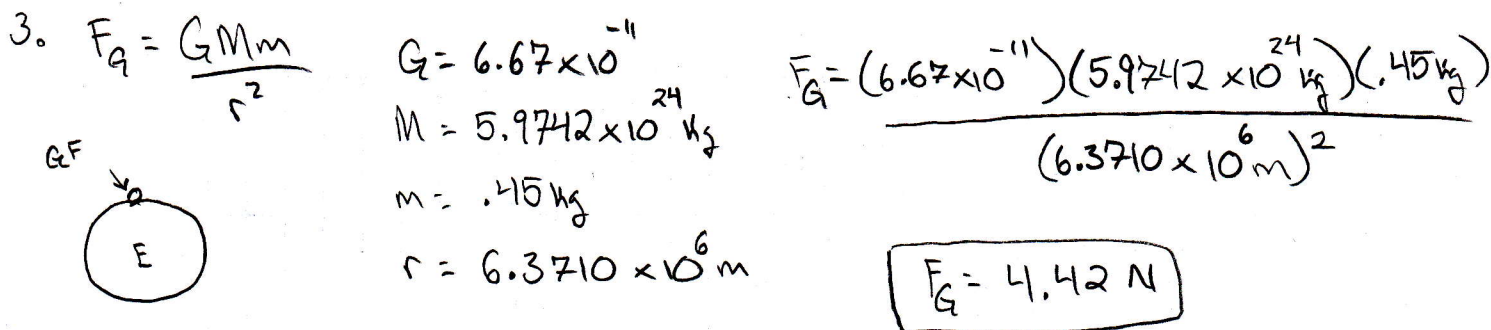 3. F_G = GMm / r²
GF
E
G = 6.67×10⁻¹¹
M = 5.9742×10²⁴ kg
m = .45 kg
r = 6.3710 × 10⁶ m
F_G = (6.67×10⁻¹¹)(5.9742 ×10²⁴ kg)(.45 kg)
(6.3710 × 10⁶ m)²
F_G = 4.42 N